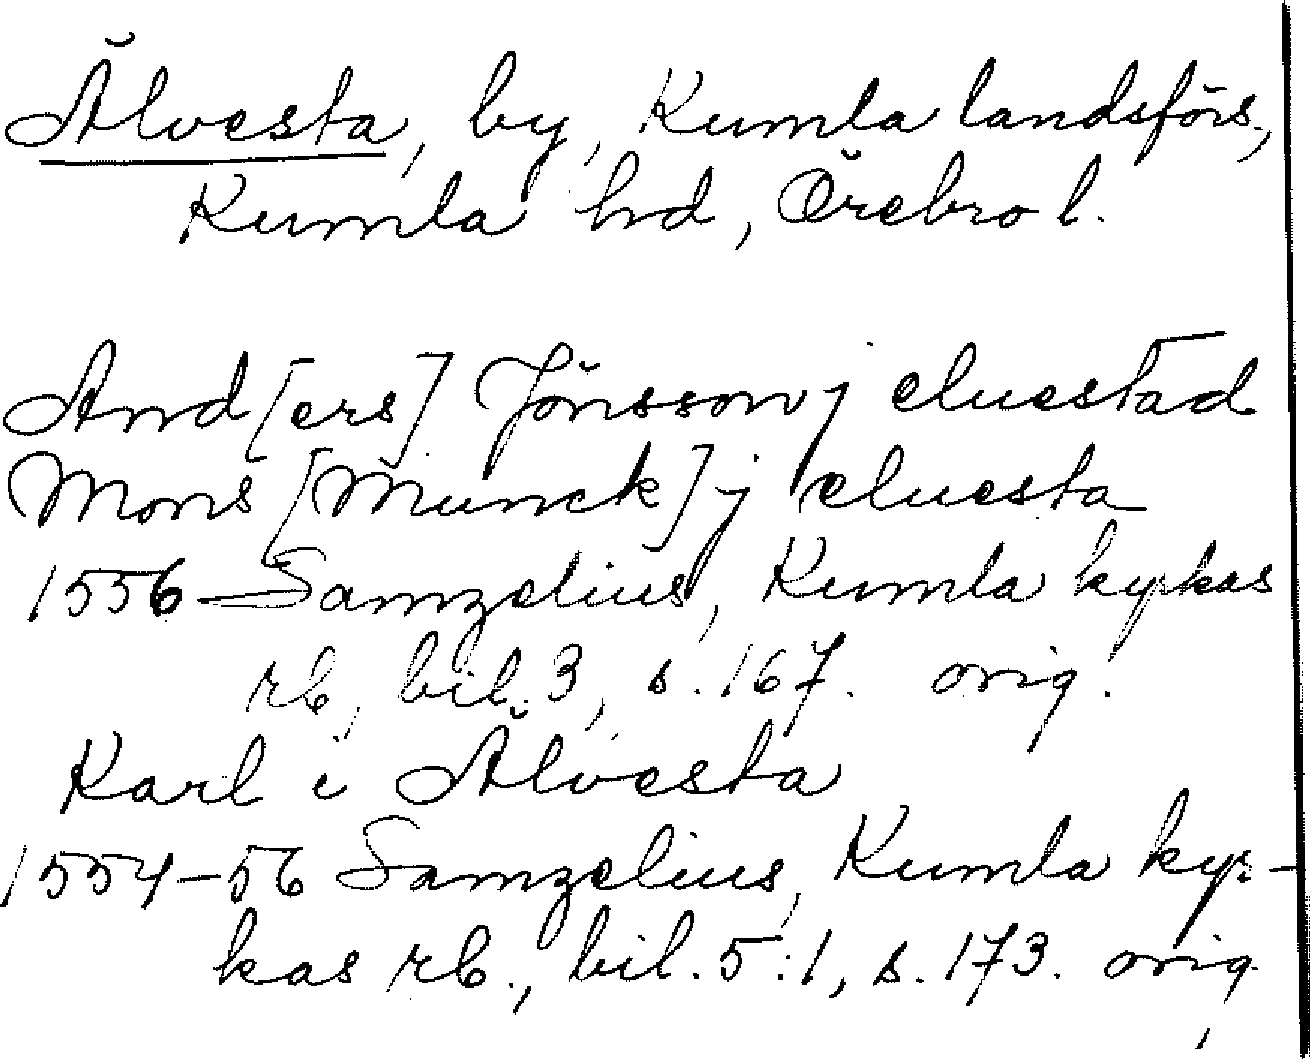 Älvesta, by, Kumla landsförs.,
Kumla hd, Örebro l.
And[ers] Jönsson j eluestad
Mons [Munck] j eluesta
1556 Samzelius, Kumla kyrkas
rb, bil. 3, s. 167. orig.
Karl i Älvesta
1554-56 Samzelius, Kumla kyr-
kas rb., bil. 5:1, s. 173. orig.